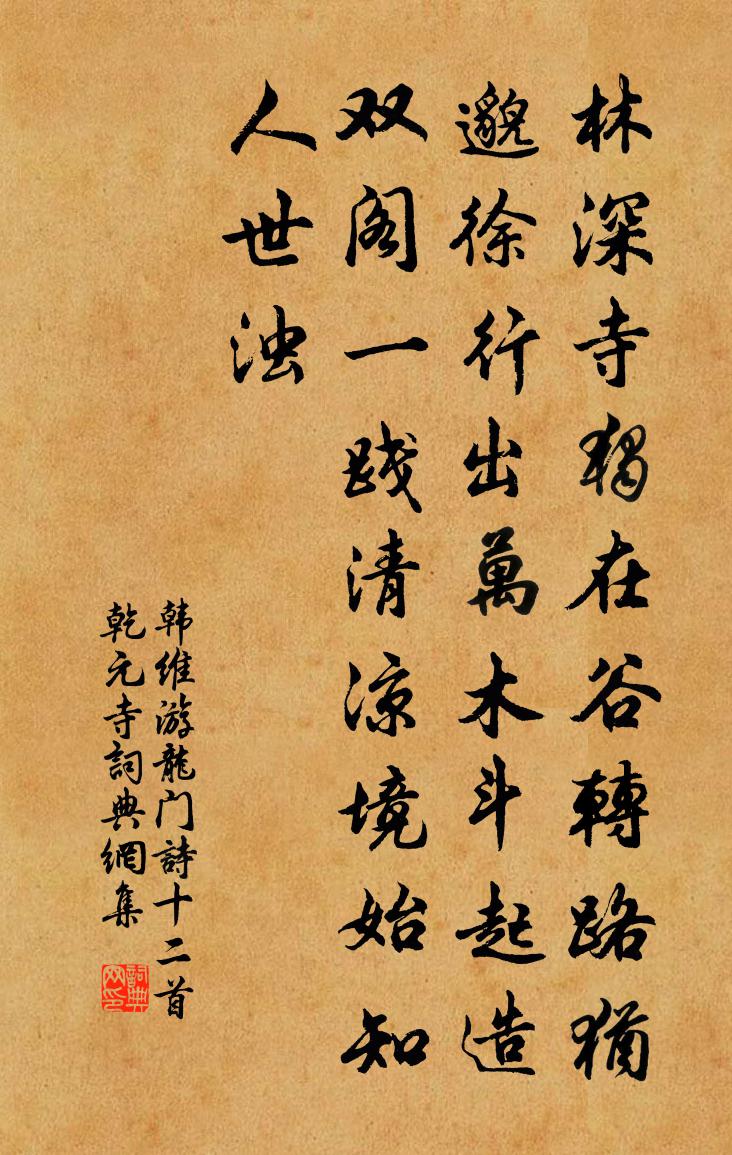 林深寺独在谷轉路猶
邈徐行出萬木斗起造
双阁一践清凉境始知
人世浊
韩维游龍门詩十二首
乾元寺詞典網集
詞典网印